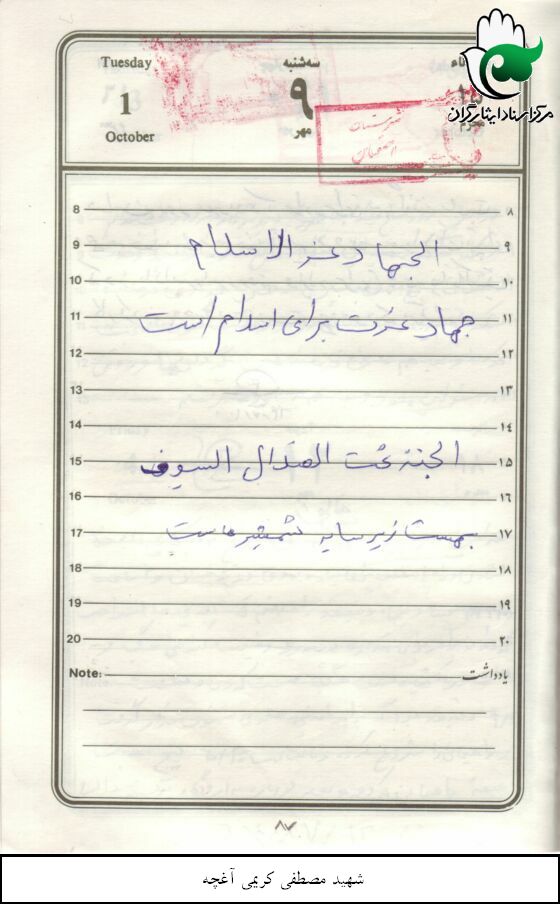 Tuesday سه‌شنبه
1 ۹ ۱۵
October مهر محرم
مرکز اسناد ایثارگران
شهرستان
اصفهان
8 ۸
9 الجهاد عز الاسلام ۹
10 ۱۰
11 جهاد عزت برای اسلام است ۱۱
12 ۱۲
13 ۱۳
14 ۱۴
15 الجنة تحت الضلال السیوف ۱۵
16 ۱۶
17 بهشت زیر سایه شمشیرهاست ۱۷
18 ۱۸
19 ۱۹
20 ۲۰
Note: یادداشت
۸۷
شهید مصطفی کریمی آغچه